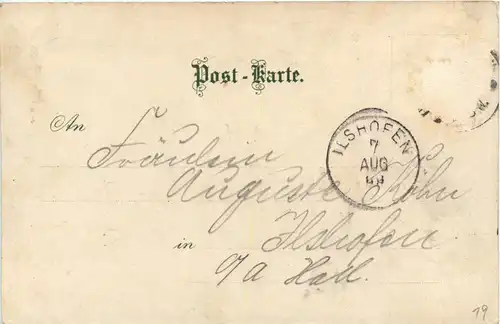 Post-Karte.
An
Fräulein
Auguste Köhn
in
Ilshofen
Hall.
ILSHOFEN
7
AUG
19